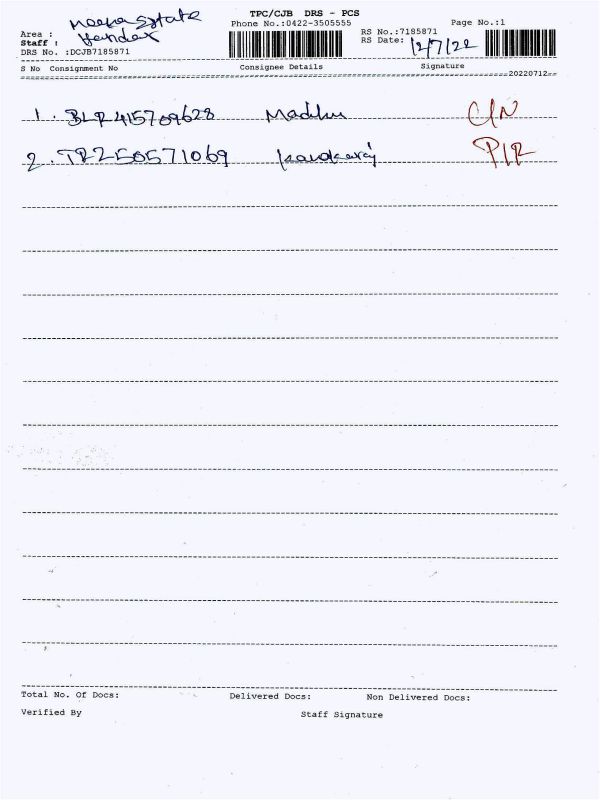 TPC/CJB DRS - PCS
Phone No.:0422-3505555
Page No.:1
Area : Meena Estate
Staff :
DRS No. :DCJB7185871
RS No.:7185871
RS Date: 12/7/22
S No Consignment No Consignee Details Signature
20220712
1. BLR415709628 Madhu C/N
2. TRZ50571069 Kanakaraj P/R
Total No. Of Docs: Delivered Docs: Non Delivered Docs:
Verified By Staff Signature